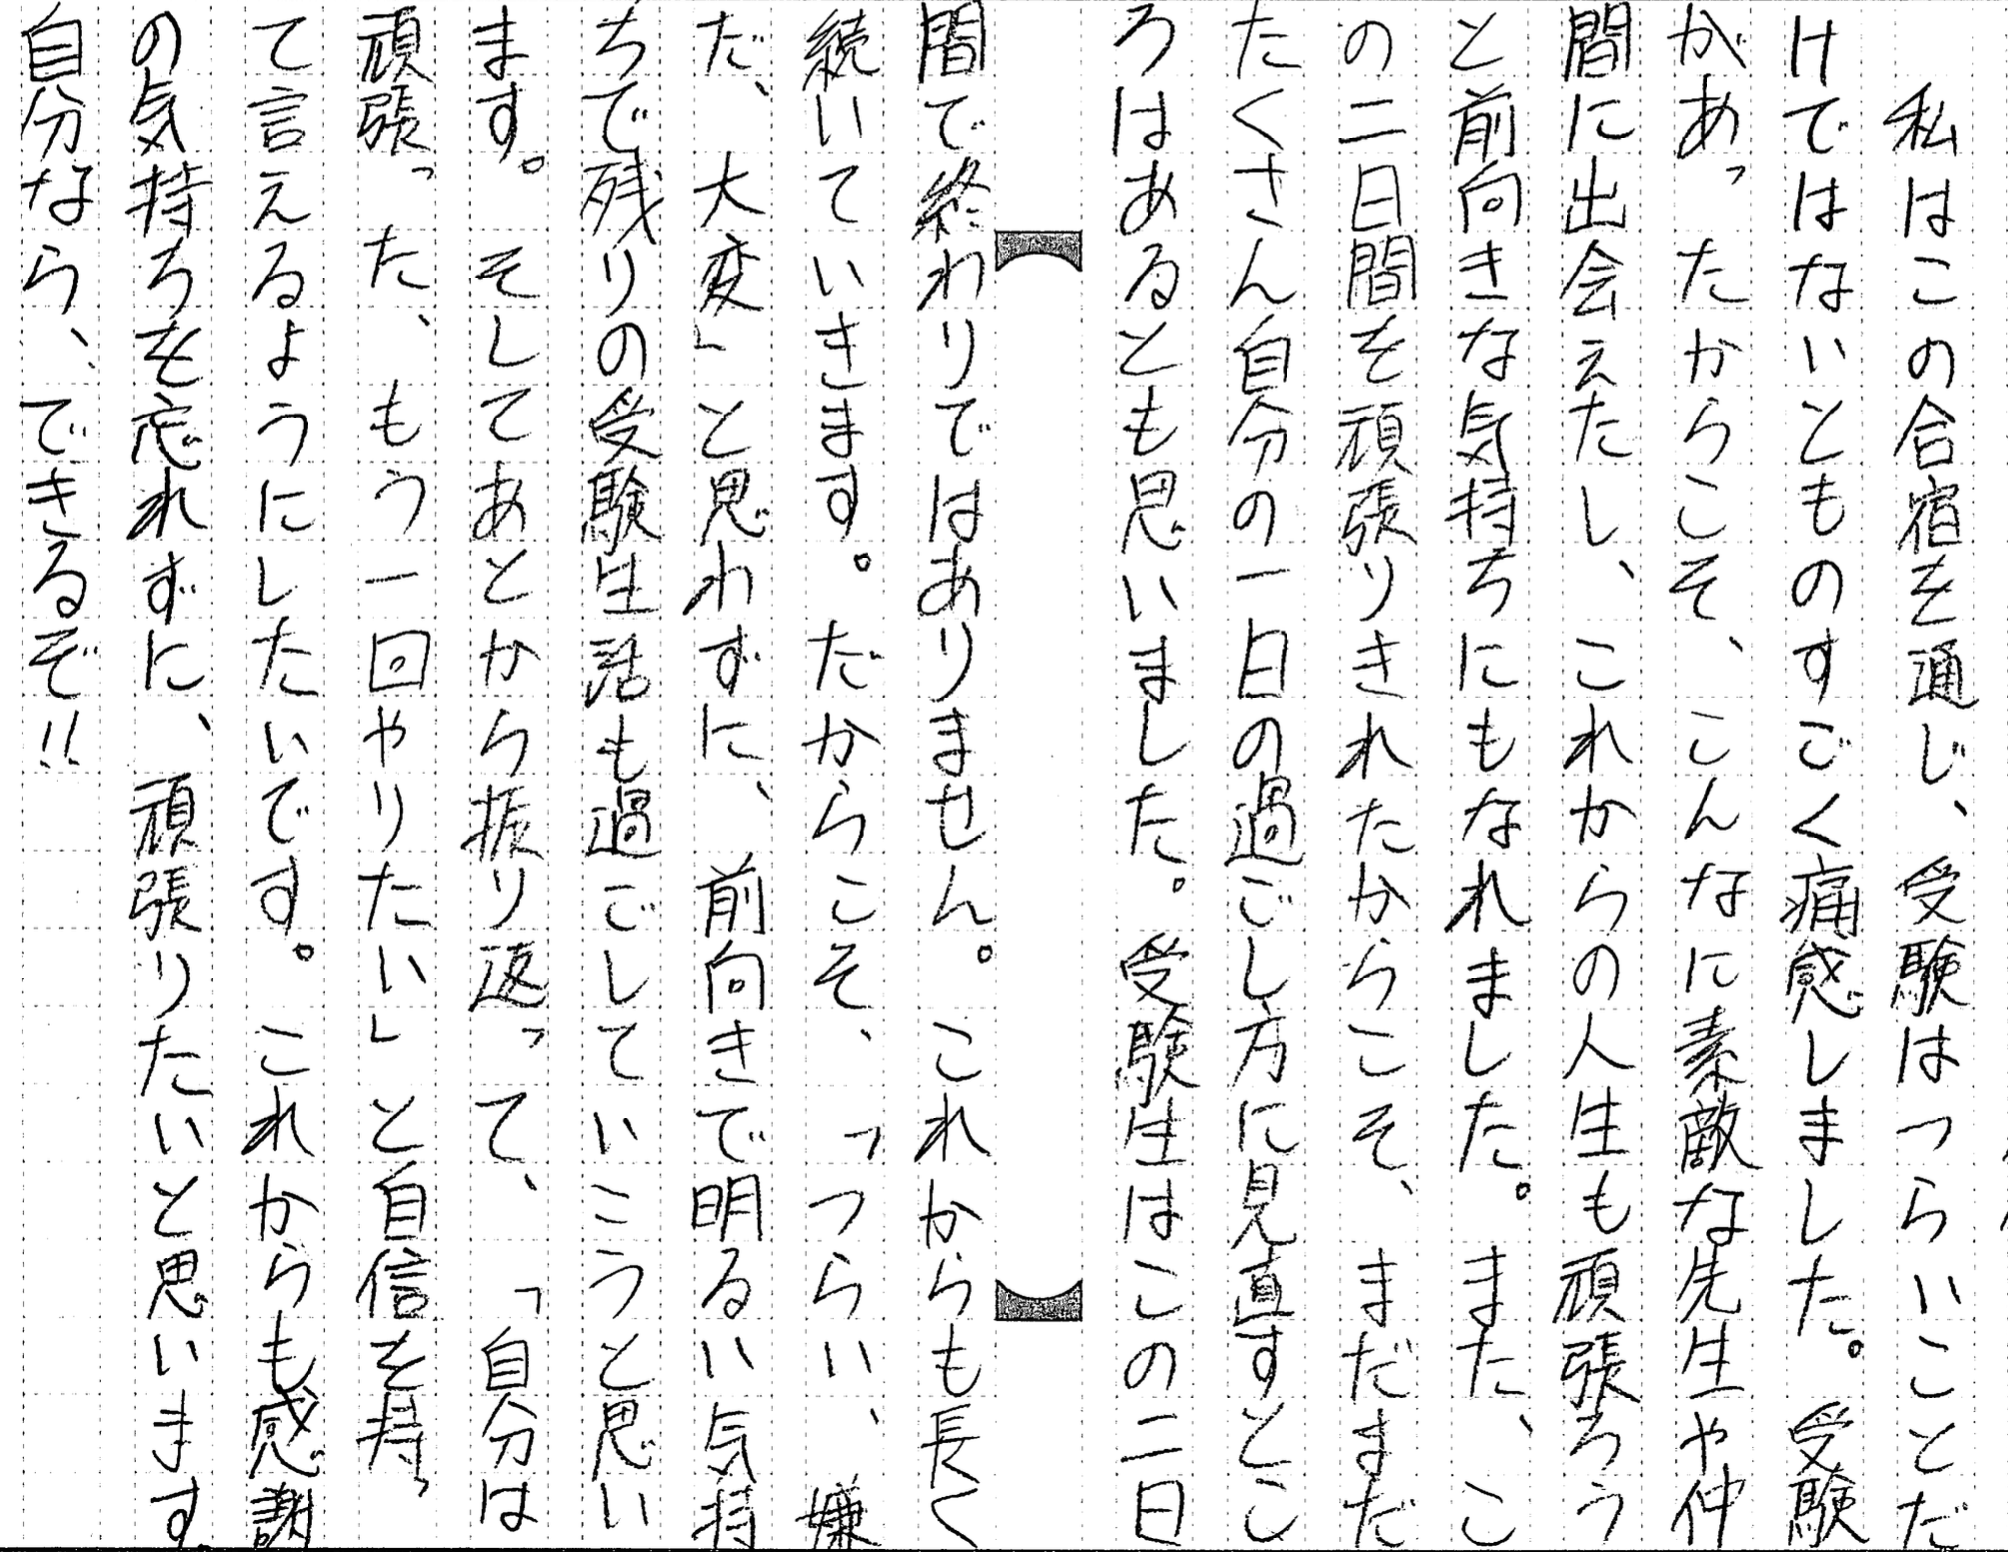 私はこの合宿を通じ、受験はつらいことだ
けではないとものすごく痛感しました。受験
があったからこそ、こんなに素敵な先生や仲
間に出会えたし、これからの人生も頑張ろう
と前向きな気持ちにもなれました。また、こ
の二日間を頑張りきれたからこそ、まだまだ
たくさん自分の一日の過ごし方に見直すとこ
ろはあるとも思いました。受験生はこの二日
間で終わりではありません。これからも長く
続いていきます。だからこそ、「つらい、嫌
だ、大変」と思わずに、前向きで明るい気持
ちで残りの受験生活も過ごしていこうと思い
ます。そしてあとから振り返って、「自分は
頑張った、もう一回やりたい」と自信を持っ
て言えるようにしたいです。これからも感謝
の気持ちを忘れずに、頑張りたいと思います。
自分なら、できるぞ!!